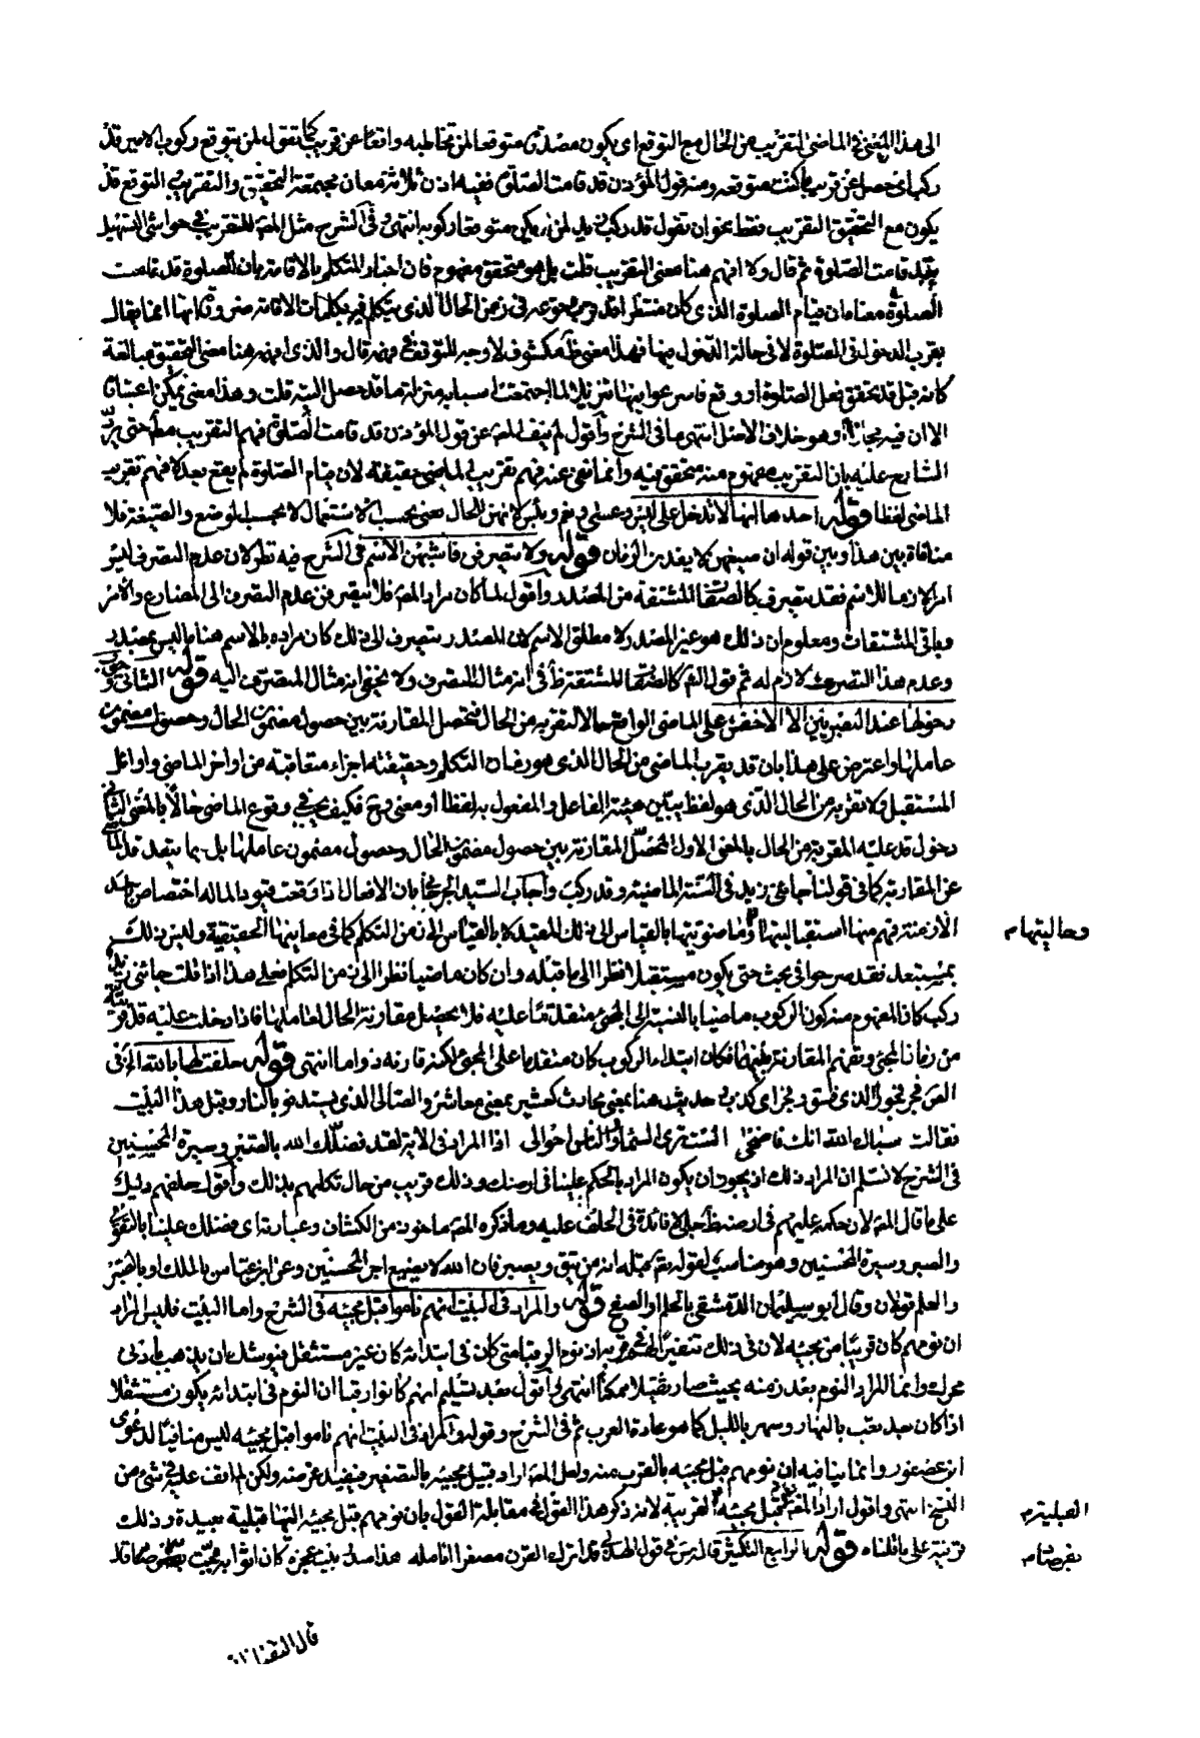 الى هذا المعنى في الماضي التقريب من الحال مع التوقع اى يكون مصدقه متوقعا لمن تخاطبه واقعا عن قريب كما تقول لمن يتوقع ركوب الامير قد
ركب اى حصل عن قريب ما كنت متوقعه ومنه قول المؤذن قد قامت الصلوة ففيه اذن ثلاثة معان مجتمعة التحقيق والتقريب التوقع قد
يكون مع التحقيق التقريب فقط نحو ان تقول قد ركب زيد لمن لم يكن متوقعا ركوبه انتهى وفي الشرح مثل المص للتقريب في حواشى التسهيل
بقد قامت الصلوة ثم قال ولا افهم هنا معنى التقريب قلت بل هو متحقق مفهوم فان اخبار المتكلم بالاقامة بان الصلوة قد قامت
الصلوة معناه ان قيام الصلوة الذى كان منتظرا قد قرب وقوعه في زمن الحال الذى يتكلم فيه بكلمات الاقامة ضرورة انها انما يقال
بقرب الدخول في الصلوة لا في حالة الدخول فيها فهذا معنى ظ مكشوف لا وجه للتوقف في فهمه قال والذى افهمه هنا معنى التحقيق مبالغة
كانه قيل قد تحقق فعل الصلوة او وقع فاسرعوا اليها تنزيلا لما اجتمعت اسبابه منزلة ما قد حصل البتة قلت وهذا معنى يمكن اعتباره
الا ان فيه مجازا وهو خلاف الاصل انتهى ما في الشرح واقول لم ينف المص عن قول المؤذن قد قامت الصلوة فهم التقريب مط حتى يرد
الشارح عليه بان التقريب مفهوم منه متحقق فيه وانما نفى عنه فهم تقريب الماضى حقيقة لان قيام الصلوة لم يقع بعد فلا فهم تقريب
الماضى لفظا قوله احدها انها لا تدخل على ليس وعسى ونعم وبئس لانهن للحال يعنى بحسب الاستعمال لا بحسب الوضع والصيغة فلا
منافاة بين هذا وبين قوله ان صيغهن لا يفدن الزمان قوله ولا يتصرفن فاشبهن الاسم في الشرح فيه نظر لان عدم التصرف ليس
امرا لازما للاسم فقد يتصرف كالصفة المشتقة من المصدر واقول لما كان مراد المص فلا يتصرفن عدم التصرف الى المضارع والامر
وباقى المشتقات ومعلوم ان ذلك هو غير المصدر لا مطلق الاسم لان المصدر يتصرف الى ذلك كان مراده بالاسم هنا ما ليس بمصدر
وعدم هذا التصرف لازم له ثم قول الش كالصفة المشتقة ظ في انه مثال للمتصرف ولا يخفى انه مثال المتصرف اليه قوله الثانى وجوب
دخولها عند البصريين الا الاخفش على الماضى الواقع حالا لتقربه من الحال فتحصل المقارنة بين حصول مضمون الحال وحصول مضمون
عاملها واعترض على هذا بان قد يقرب الماضى من الحال الذى هو زمان التكلم وحقيقته اجزاء متعاقبة من اواخر الماضى واوائل
المستقبل ولا تقربه من الحال الذى هو لفظ يبين هيئة الفاعل والمفعول به لفظا او معنى وح فكيف يجب في وقوع الماضى حالا بالمعنى الثانى
دخول قد عليه المقربة من الحال بالمعنى الاول لتحصل المقارنة بين حصول مضمون الحال وحصول مضمون عاملها بل ربما تبعد قد الماضى
عن المقارنة كما في قولنا جاءنى زيد في السنة الماضية وقد ركب واجاب السيد الجرجانى بان الافعال اذا وقعت قيودا لما له اختصاص باحد
الازمنة فهم منها استقباليتها او ماضويتها بالقياس الى ذلك المقيد لا بالقياس الى زمن التكلم كما في معانيها الحقيقية وليس ذلك
وحاليتها م
بمستبعد فقد صرحوا في بحث حتى يكون مستقبلا نظرا الى ما قبله وان كان ماضيا نظرا الى زمن التكلم فعلى هذا اذا قلت جاءنى زيد
ركب كان المفهوم منه كون الركوب ماضيا بالنسبة الى المجئ متقدما عليه فلا يحصل مقارنة الحال لعاملها فاذا دخلت عليه قد قربته
من زمان المجئ وتفهم المقارنة بينهما فكان ابتداء الركوب كان متقدما على المجئ لكنه قارنه دواما انتهى قوله حلفت لها بالله الخ في
الش فجر فجورا الذى فسق وفجر اى كذب حديث هنا بمعنى محادث كعشير بمعنى معاشر والصالى الذى يستدفئ بالنار وقبل هذا البيت
فقالت سباك الله انك فاضحى الست ترى السمار والناس احوالى اذا المراد في الاية لقد فضلك الله بالصبر وسيرة المحسنين
في الشرح لا نسلم ان المراد ذلك اذ يجوز ان يكون المراد بالحكم علينا في ارضك وذلك قريب من حال تكلمهم بذلك واقول حلفهم دليل
على ما قال المص لان حكمه عليهم في ارضه ظ جلى لا فائدة في الحلف عليه وما ذكره المص ماخوذ من الكشاف وعبارته اى فضلك علينا بالتقوى
والصبر وسيرة المحسنين وهو مناسب لقوله تع قبله انه من يتق ويصبر فان الله لا يضيع اجر المحسنين وعن ابن عباس بالملك او بالصبر
والعلم قولان وقال ابو سليمان الدمشقى بالحلم والصفح قوله والمراد في البيت انهم ناموا قبل مجيئه في الشرح واما البيت فليس المراد
ان نومهم كان قريبا من مجيئه لان في ذلك تنفيرا لمحبوبته اذ نوم الرقباء متى كان في ابتدائه كان غير مستثقل فيوشك ان يذهب بادنى
محرك وانما المراد النوم بعد زمنه بحيث صار ثقيلا ممكنا انتهى واقول بعد تسليم انهم كانوا رقباء ان النوم في ابتدائه يكون مستثقلا
اذا كان بعد تعب بالنهار وسهر بالليل كما هو عادة العرب ثم في الشرح وقوله والمراد في البيت انهم ناموا قبل مجيئه ليس منافيا لدعوى
ابن عصفور وانما ينافيه ان نومهم قبل مجيئه بالقرب منه ولعل المص اراد قبيل مجيئه بالتصغير فيفيد غرضه ولكن لم اقف عليه في شئ من
النسخ انتهى واقول اراد المص بقوله قبل مجيئه القريبة لانه ذكر هذا القول في مقابلة القول بان نومهم قبل مجيئه اليها قبلية بعيدة وذلك
القبلية م
قرينة على ما قلناه قوله الرابع التكثير قاله س في قول الهذلى قد اترك القرن مصفرا انامله هذا صدر بيت عجزه كان اثوابه مجت بفرصاد
بفرصاد م
قال التفتازانى